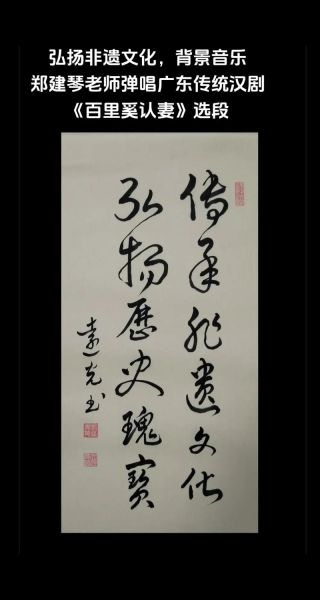 弘扬非遗文化，背景音乐
郑建琴老师弹唱广东传统汉剧
《百里奚认妻》选段
传承非遗文化
弘扬歷史瑰寳
远克书